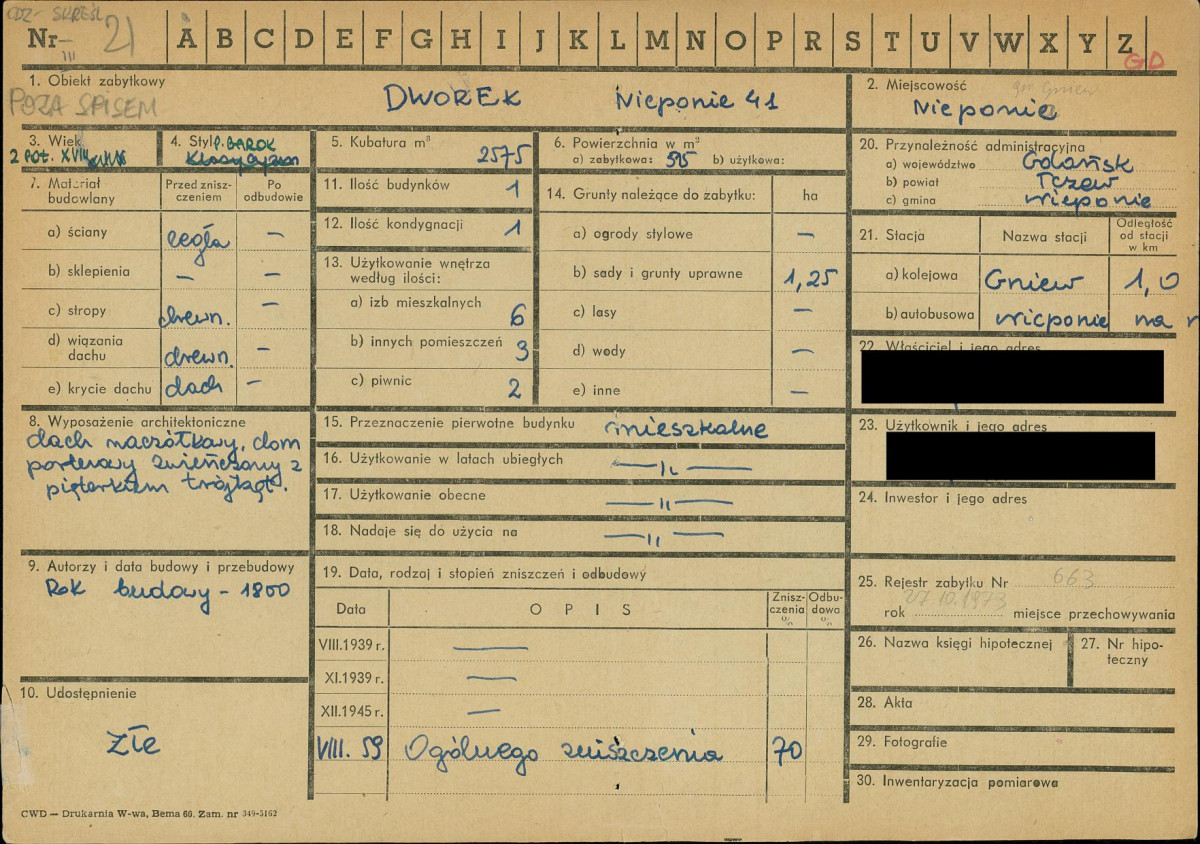 ODZ - SKREŚL
Nr 21
III
A B C D E F G H I J K L M N O P R S T U V W X Y Z
GD
1. Obiekt zabytkowy
POZA SPISEM
DWOREK Nieponie 41
2. Miejscowość
gm Gniew
Nieponie
3. Wiek
2 poł. XVIII
4. Styl p. BAROK
Klasycyzm
5. Kubatura m³
2575
6. Powierzchnia w m²
a) zabytkowa: 515 b) użytkowa:
20. Przynależność administracyjna
a) województwo Gdańsk
b) powiat Tczew
c) gmina Nieponie
7. Materiał budowlany
Przed zniszczeniem
Po odbudowie
a) ściany cegła —
b) sklepienia — —
c) stropy drewn. —
d) wiązania dachu drewn. —
e) krycie dachu dach —
11. Ilość budynków 1
12. Ilość kondygnacji 1
13. Użytkowanie wnętrza
według ilości:
a) izb mieszkalnych 6
b) innych pomieszczeń 3
c) piwnic 2
14. Grunty należące do zabytku: ha
a) ogrody stylowe —
b) sady i grunty uprawne 1,25
c) lasy —
d) wody —
e) inne —
21. Stacja
Nazwa stacji
Odległość
od stacji
w km
a) kolejowa Gniew 1,0
b) autobusowa Nicponie na
22. Właściciel i jego adres
8. Wyposażenie architektoniczne
dach naczółkowy, dom
parterowy zwieńczony z
pięterkiem trójkąt.
15. Przeznaczenie pierwotne budynku mieszkalne
16. Użytkowanie w latach ubiegłych —„—
17. Użytkowanie obecne —„—
18. Nadaje się do użycia na —„—
23. Użytkownik i jego adres
24. Inwestor i jego adres
9. Autorzy i data budowy i przebudowy
Rok budowy - 1800
19. Data, rodzaj i stopień zniszczeń i odbudowy
Data
OPIS
Zniszczenia %
Odbudowa %
VIII.1939 r. —
XI.1939 r. —
XII.1945 r. —
VIII. 59 Ogólnego zniszczenia 70
25. Rejestr zabytku Nr 663
rok 27.10.1973 miejsce przechowywania
26. Nazwa księgi hipotecznej
27. Nr hipoteczny
28. Akta
29. Fotografie
30. Inwentaryzacja pomiarowa
10. Udostępnienie
Złe
CWD — Drukarnia W-wa, Bema 60. Zam. nr 349-5162